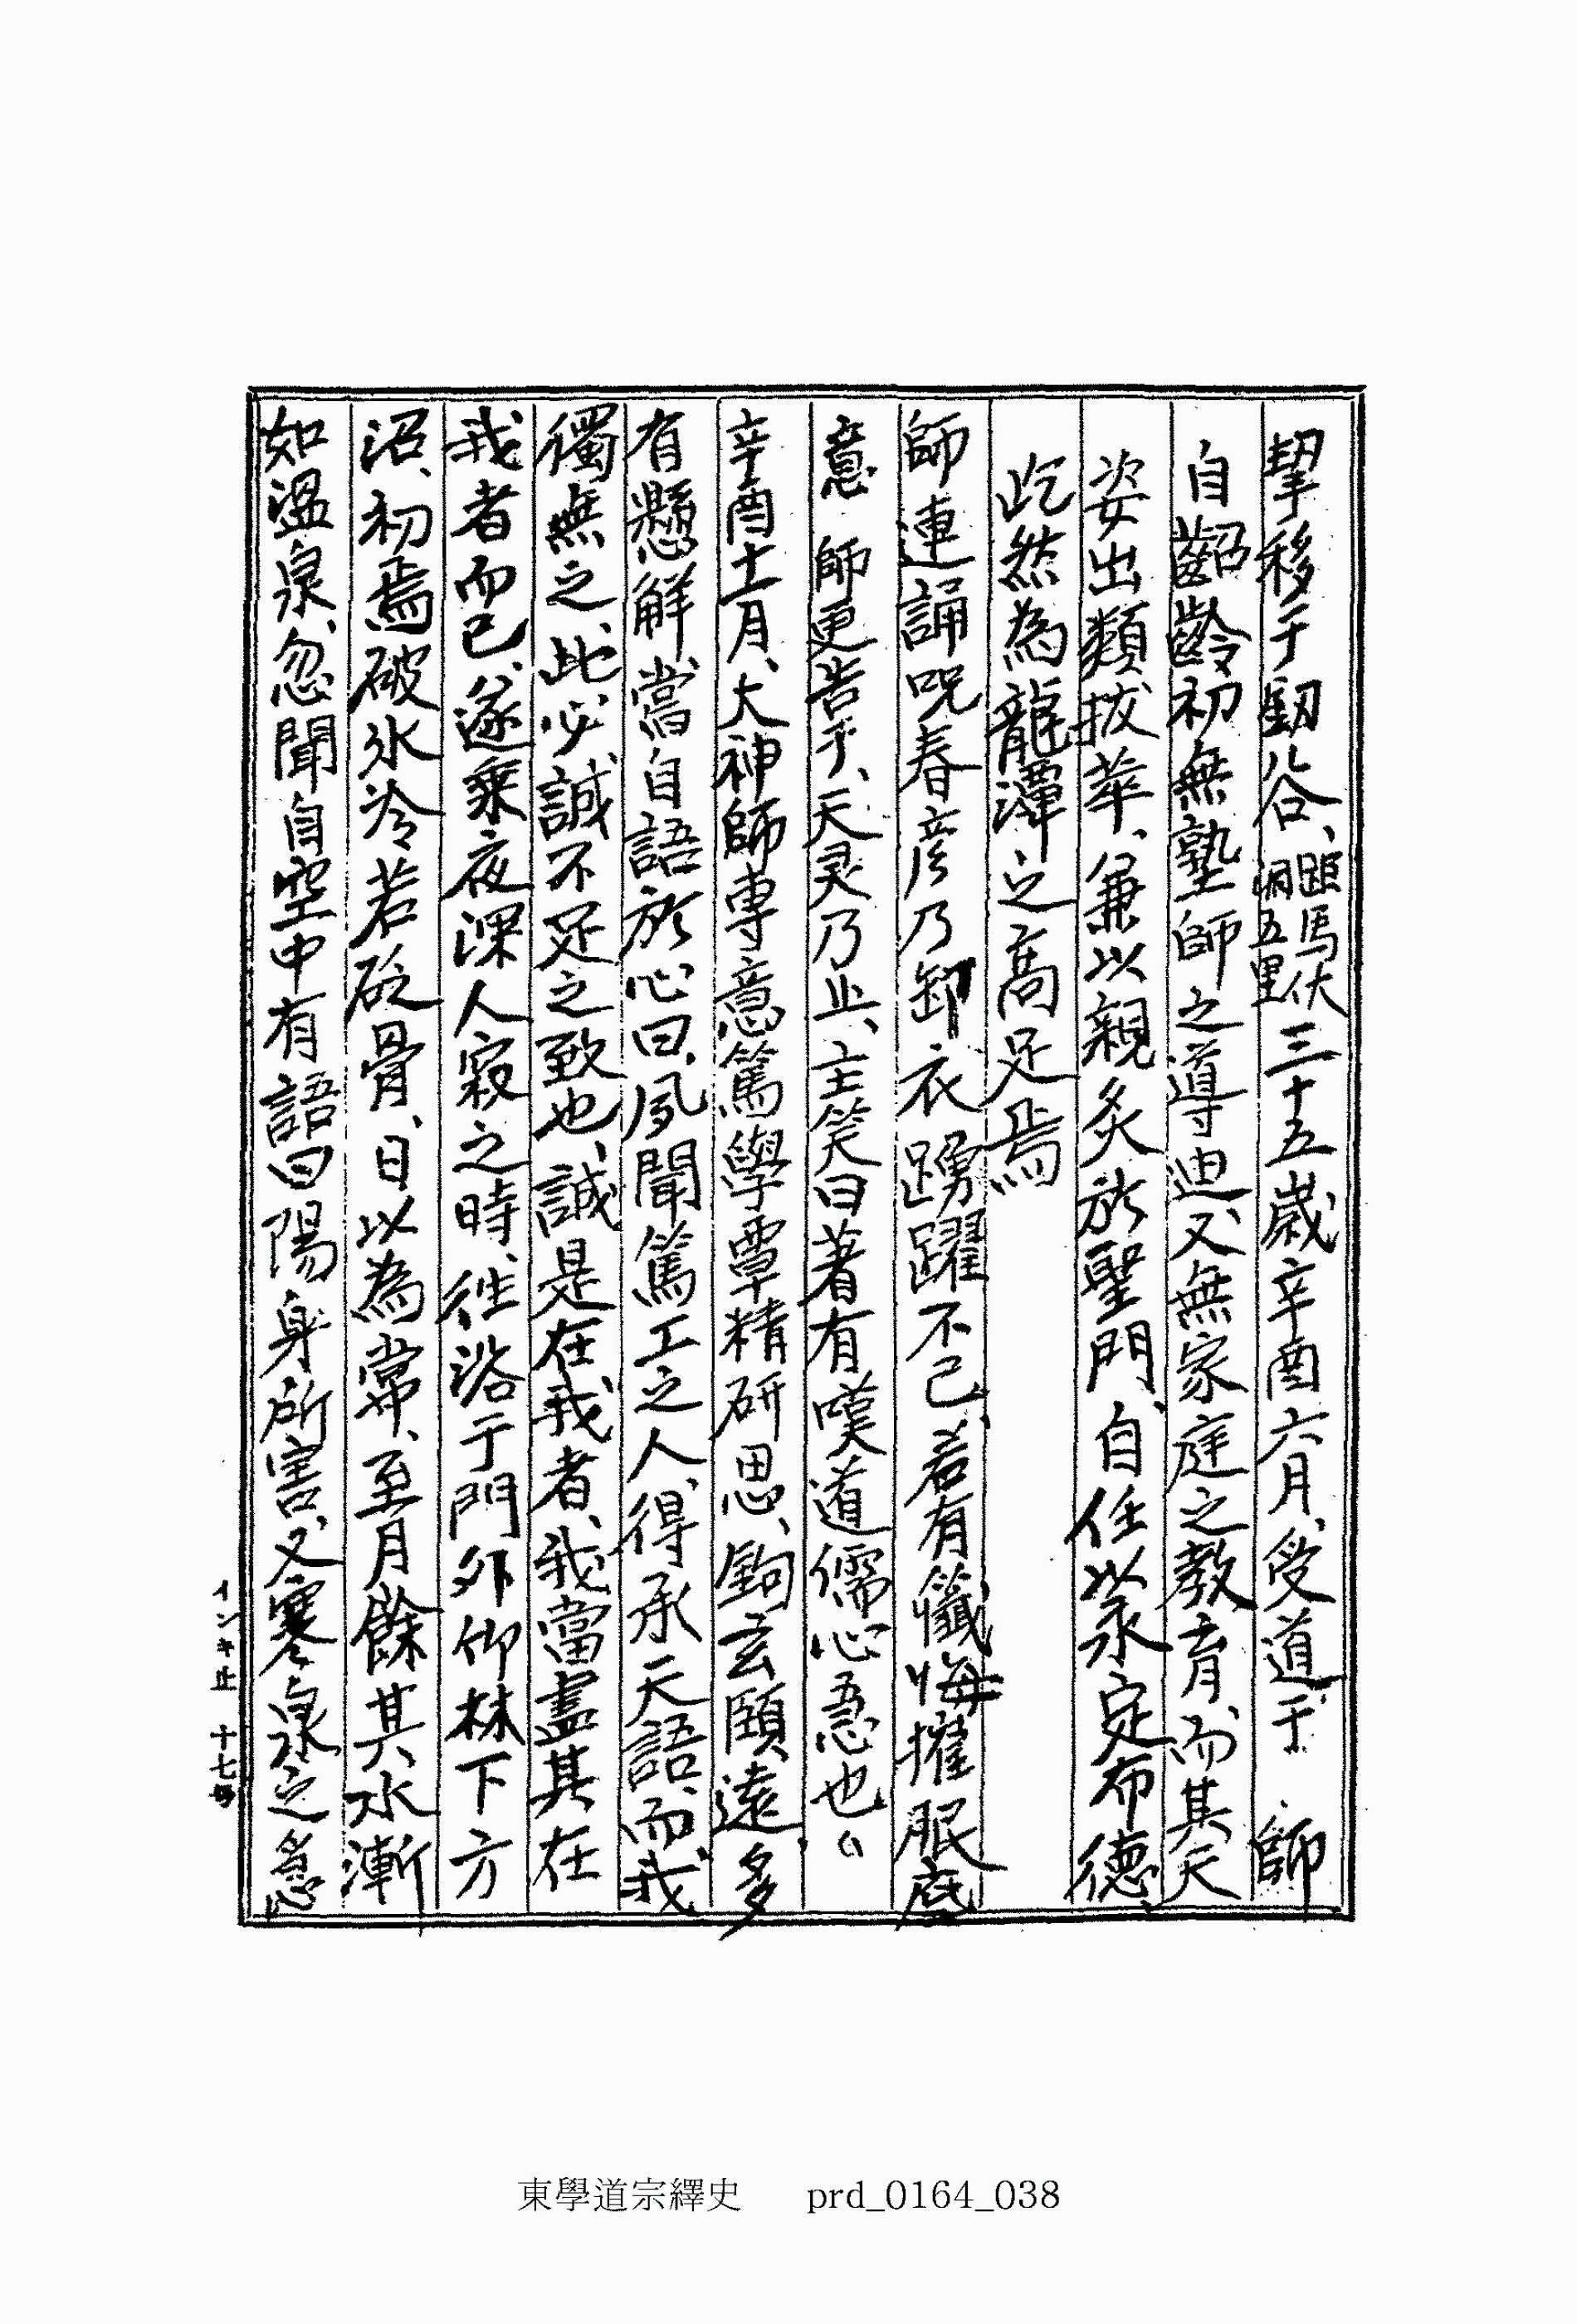 挈移于劒谷、距馬伏洞五里三十五歲辛酉六月、受道于 師
自齠齡初無塾師之導迪、又無家庭之教育、而其天
姿出類拔萃、兼以親炙於聖門、自任以永定布德、
屹然為龍潭之高足焉
師連誦呪春彦乃卸衣踴躍不已、若有懺悔摧服底
意 師更告于、天灵乃止、主笑曰著有嘆道儒心急也、
辛酉十一月、大神師専意篤學覃精研思、鉤玄頤遠、多
有懸解、嘗自語於心曰、夙聞篤工之人、得承天語、而我
獨無之、此必誠不足之致也、誠是在我者、我當盡其在
我者而已、遂乘夜深人寂之時、徃浴于門外仰林下方
沼、初焉破氷冷若砭骨、日以為常、至月餘其水漸
如溫泉、忽聞自空中有語曰陽身所害、又寒泉之急
インキ止 十七号
東學道宗繹史 prd_0164_038